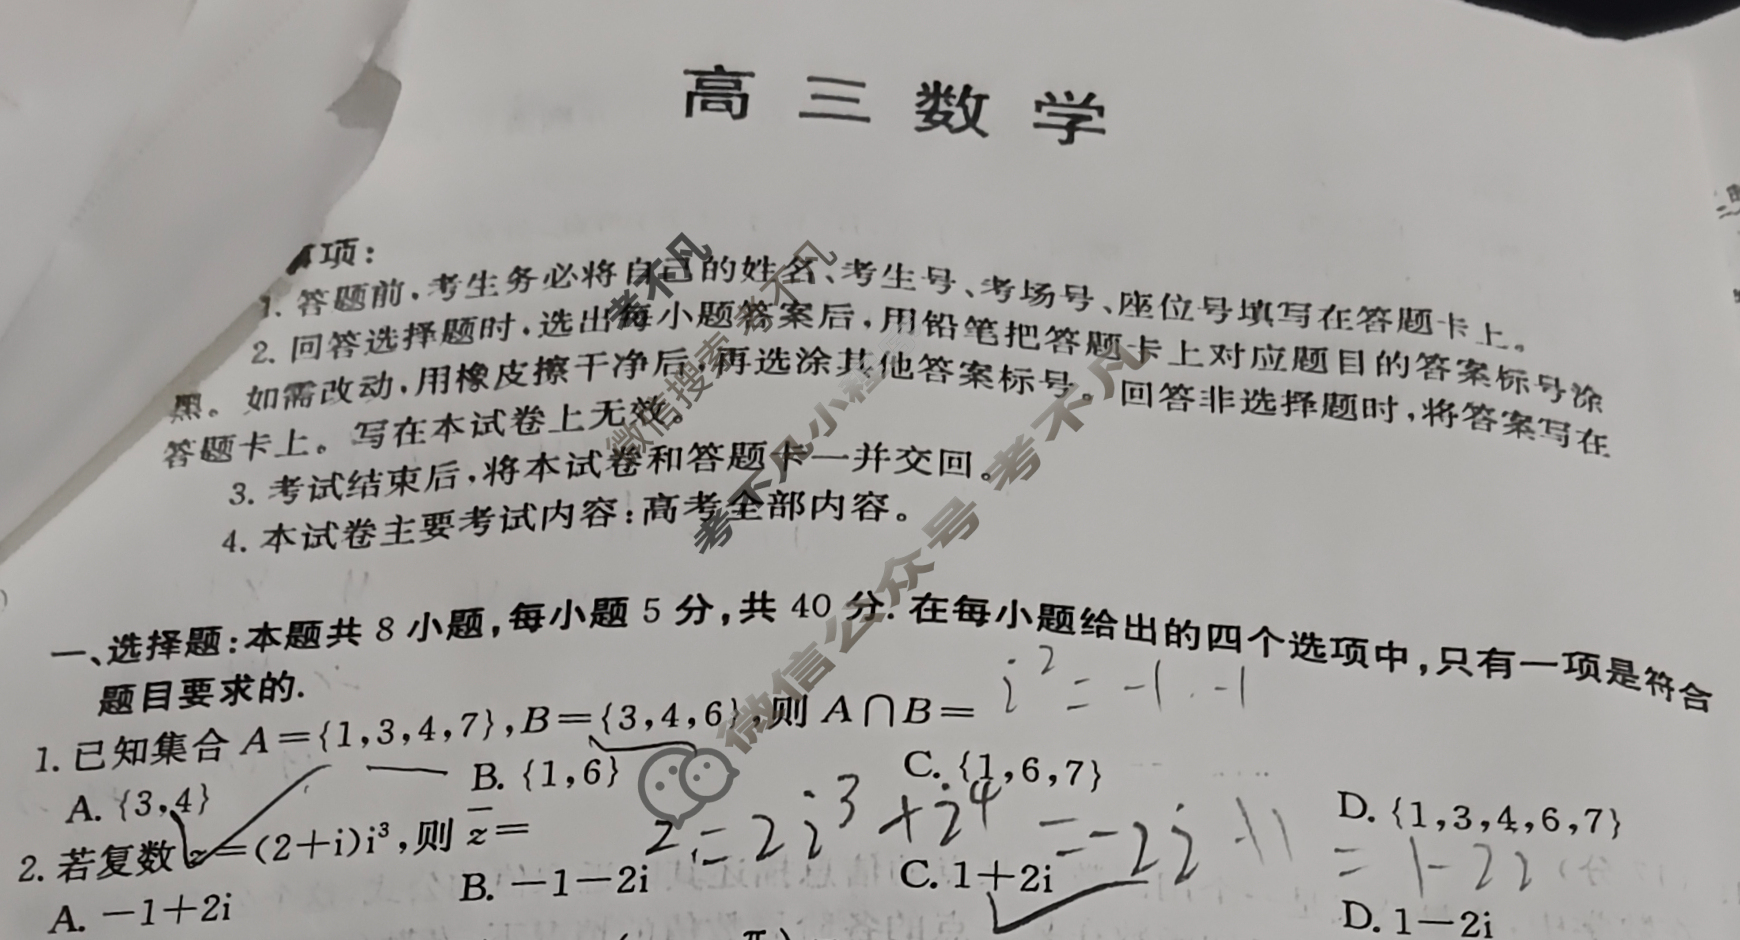 高三数学
项：
1. 答题前，考生务必将自己的姓名、考生号、考场号、座位号填写在答题卡上。
2. 回答选择题时，选出每小题答案后，用铅笔把答题卡上对应题目的答案标号涂
黑。如需改动，用橡皮擦干净后，再选涂其他答案标号。回答非选择题时，将答案写在
答题卡上。写在本试卷上无效。
3. 考试结束后，将本试卷和答题卡一并交回。
4. 本试卷主要考试内容：高考全部内容。
一、选择题：本题共 8 小题，每小题 5 分，共 40 分. 在每小题给出的四个选项中，只有一项是符合
题目要求的.
i²=-1 · -1
1. 已知集合 A={1,3,4,7}，B={3,4,6}，则 A∩B=
A. {3,4} B. {1,6} C. {1,6,7} D. {1,3,4,6,7}
2. 若复数 z=(2+i)i³，则 z̄=
z=2i³+i⁴=-2i+1
=1-2i
A. -1+2i B. -1-2i C. 1+2i D. 1-2i
考不凡
考不凡
微信搜索
考不凡小程序
微信公众号 考不凡